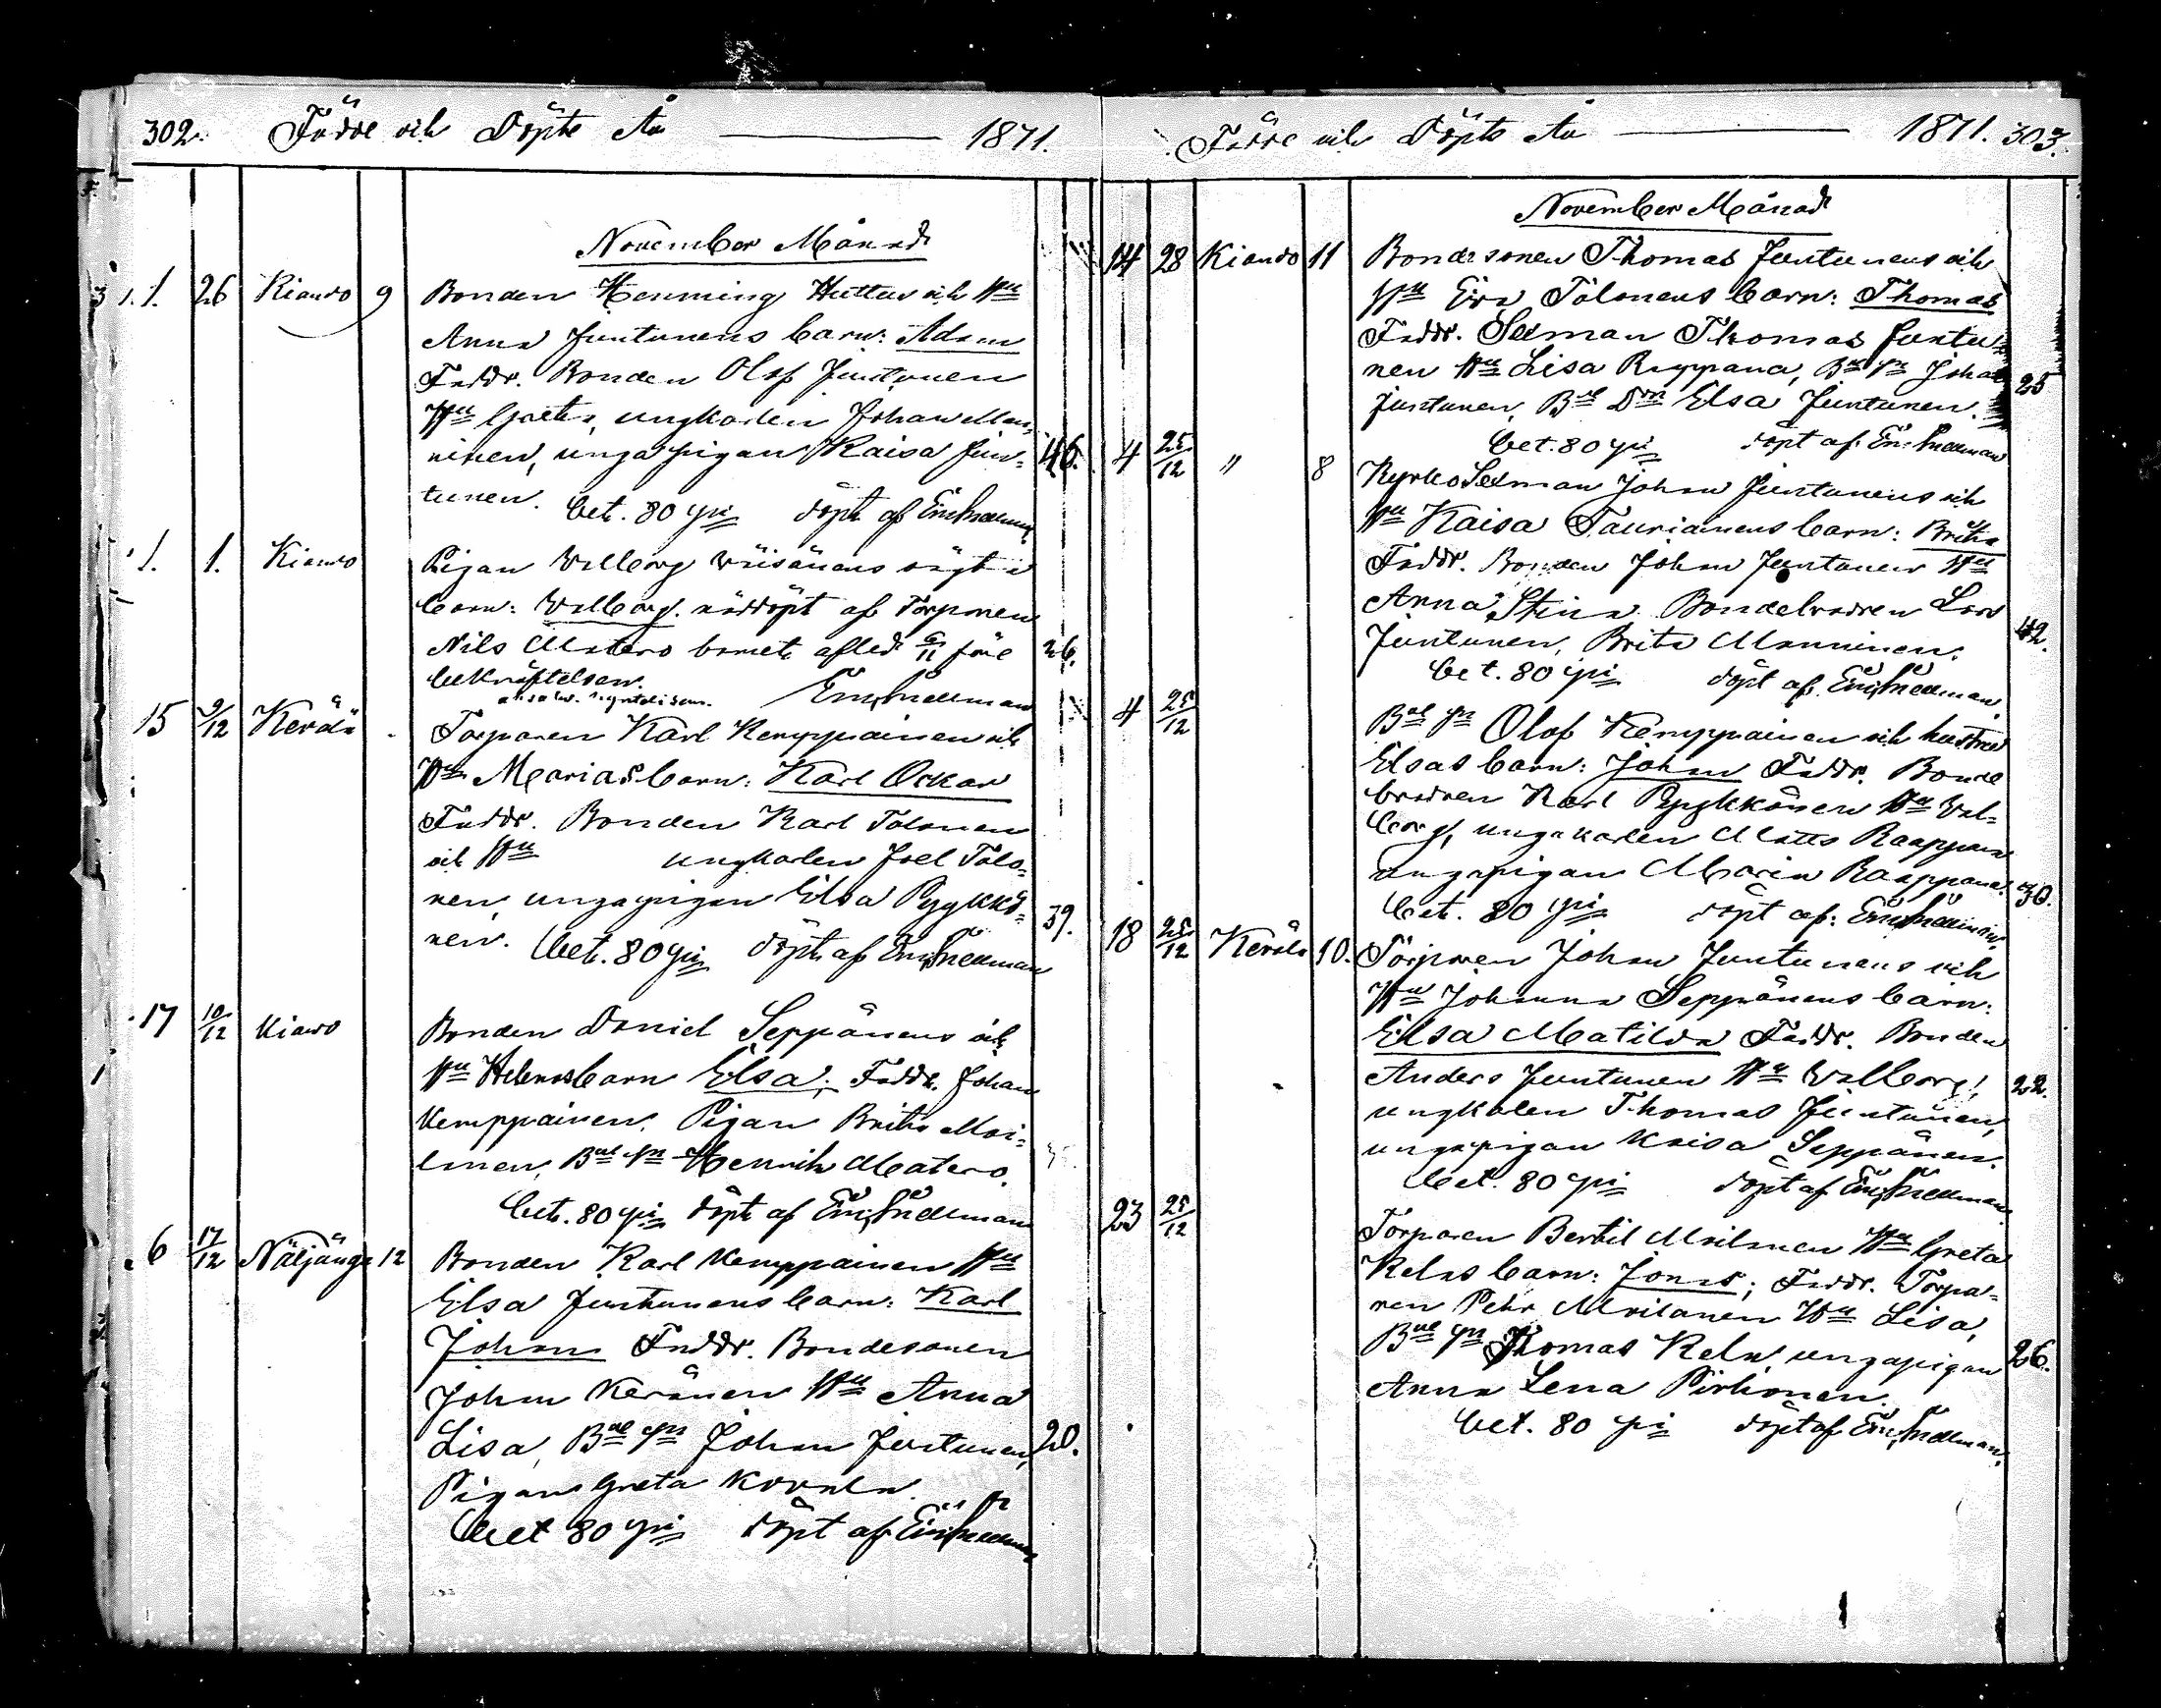 302. Födde och Döpte År 1871.
November Månad
1. 26 Kiando 9 Bonden Henning Huttus och Hu
Anna Juntunens barn: Adam
Faddr. Bonden Olof Juntunen
Hu Greta, ungkarlen Johan Man-
ninen, unga pigan Kaisa Jun- 46.
tunen. bet. 80 pi döpt af Er. Snellman
1. 1. Kiando Pigan Walborg Wäisänens oägta
barn: Walborg. nöddöpt af Torparen
Nils Matero barnet afled 6/11 före 26.
bekräftelsen.
Er. Snellman
15 9/12 Kerälä Torparen Karl Kemppainen och
Hu Marias barn: Karl Oskar
Faddr. Bonden Karl Tolonen
och Hu ungkarlen Joel Tolo-
nen, unga pigan Elsa Pyykkö- 39.
nen. bet. 80 pi döpt af Er. Snellman
17 10/12 Kiando Bonden Daniel Seppänens och
Hu Helenas barn Elsa; Faddr. Johan
Kemppainen, Pigan Brita Moi-
lanen, Bde sn Henrik Matero.
bet. 80 pi döpt af Er. Snellman
6 17/12 Näljänge 12 Bonden Karl Kemppainen Hu
Elsa Juntunens barn: Karl
Johan Faddr. Bondesonen
Johan Keränen Hu Anna
Lisa, Bde sn Johan Juntunen, 20.
Pigan Greta Kovala.
bet 80 pi döpt af Er. Snellman
Födde och Döpte År 1871. 303.
November Månad
14 28 Kiando 11 Bondesonen Thomas Juntunens och
Hu Eva Tolonens barn: Thomas
Faddr. Sexman Thomas Juntu-
nen Hu Lisa Reppana, Bde sn Johan 25
Juntunen, Bde Dr Elsa Juntunen.
bet. 80 pi döpt af Er. Snellman
4 25/12 " 8 Kyrko Sexman Johan Juntunens och
Hu Kaisa Tauriainens barn: Brita
Faddr. Bonden Johan Juntunen Hu
Anna Stina Bondebrodren Lars
Juntunen, Brita Manninen. 42.
bet. 80 pi döpt af Er. Snellman
4 25/12 Bde sn Olof Kemppainen och hustru
Elsas barn: Johan Faddr. Bonde
brodren Karl Pyykkönen Hu Wal-
borg, unga karlen Matts Raappana
unga pigan Maria Raappana. 30.
bet. 80 pi döpt af: Er. Snellman
18 25/12 Kerälä 10. Torparen Johan Juntunens och
Hu Johanna Seppänens barn:
Elsa Matilda Faddr. Bonden
Anders Juntunen Hu Walborg, 22.
ungkalen Thomas Juntunen,
unga pigan Kaisa Seppänen.
bet. 80 pi döpt af Er. Snellman
23 25/12 Torparen Bertil Moilanen Hu Greta
Kelas barn: Jonas; Faddr. Torpa-
ren Pehr Moilanen Hu Lisa,
Bde sn Thomas Kela, unga pigan 26.
Anna Lena Pirhonen.
bet. 80 pi döpt af Er. Snellman.